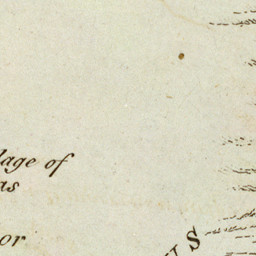 lage of
as
or
US